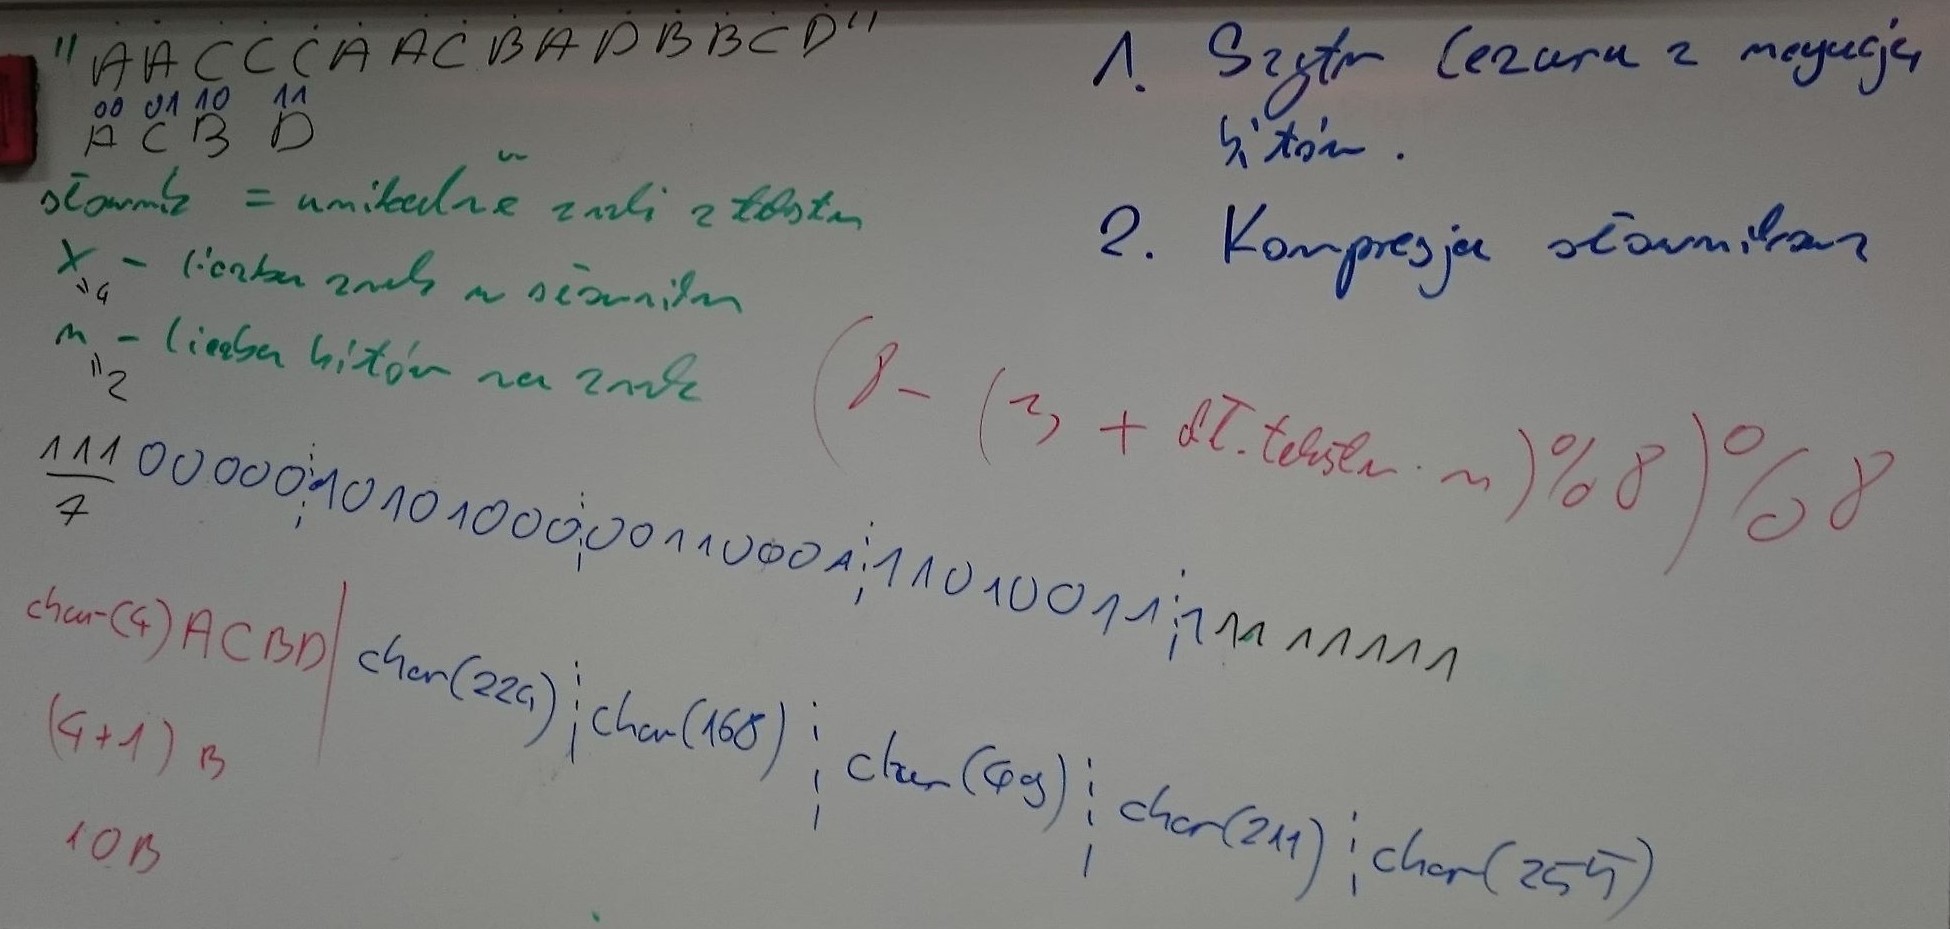 "AACCCAACBADBBCD"
00 01 10 11
A C B D
słownik = unikalne znaki z tekstu
X - liczba znaków w słowniku
"4
n - liczba bitów na znak
"2
1. Szyfr Cezara z negacją
bitów.
2. Kompresja słownikowa
(8 - (3 + dł. tekstu · n) % 8) % 8
111 00000¦10101000¦00110001¦11010011¦1 11 11111
7
char(4) ACBD | char(224) ¦ char(168) ¦ char(49) ¦ char(211) ¦ char(255)
(4+1) B
10B